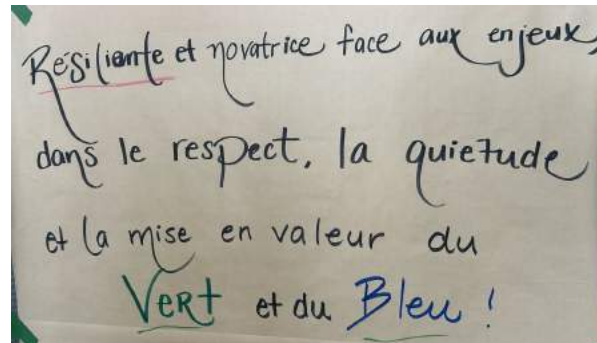 Résiliente et novatrice face aux enjeux,
dans le respect, la quietude
et la mise en valeur du
Vert et du Bleu !